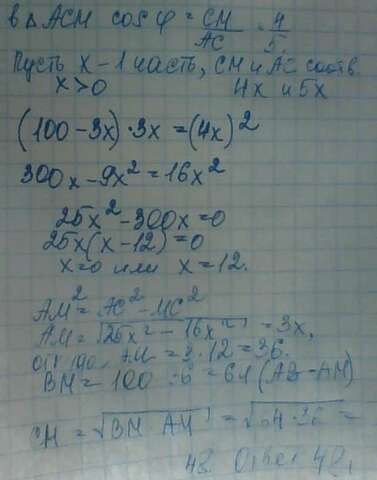 в △ ACM cos φ = CM/AC = 4/5.
Пусть x - 1 часть, CM и AC соотв
x>0 4x и 5x
(100 - 3x) · 3x = (4x)²
300x - 9x² = 16x²
25x² - 300x = 0
25x(x - 12) = 0
x=0 или x = 12.
AM² = AC² - MC²
AM = √25x² - 16x² = 3x,
AM = 3 · 12 = 36.
BM = 100 - 36 = 64 (AB - AM)
CM = √BM · AM = √64 · 36 =
48. Ответ 48.